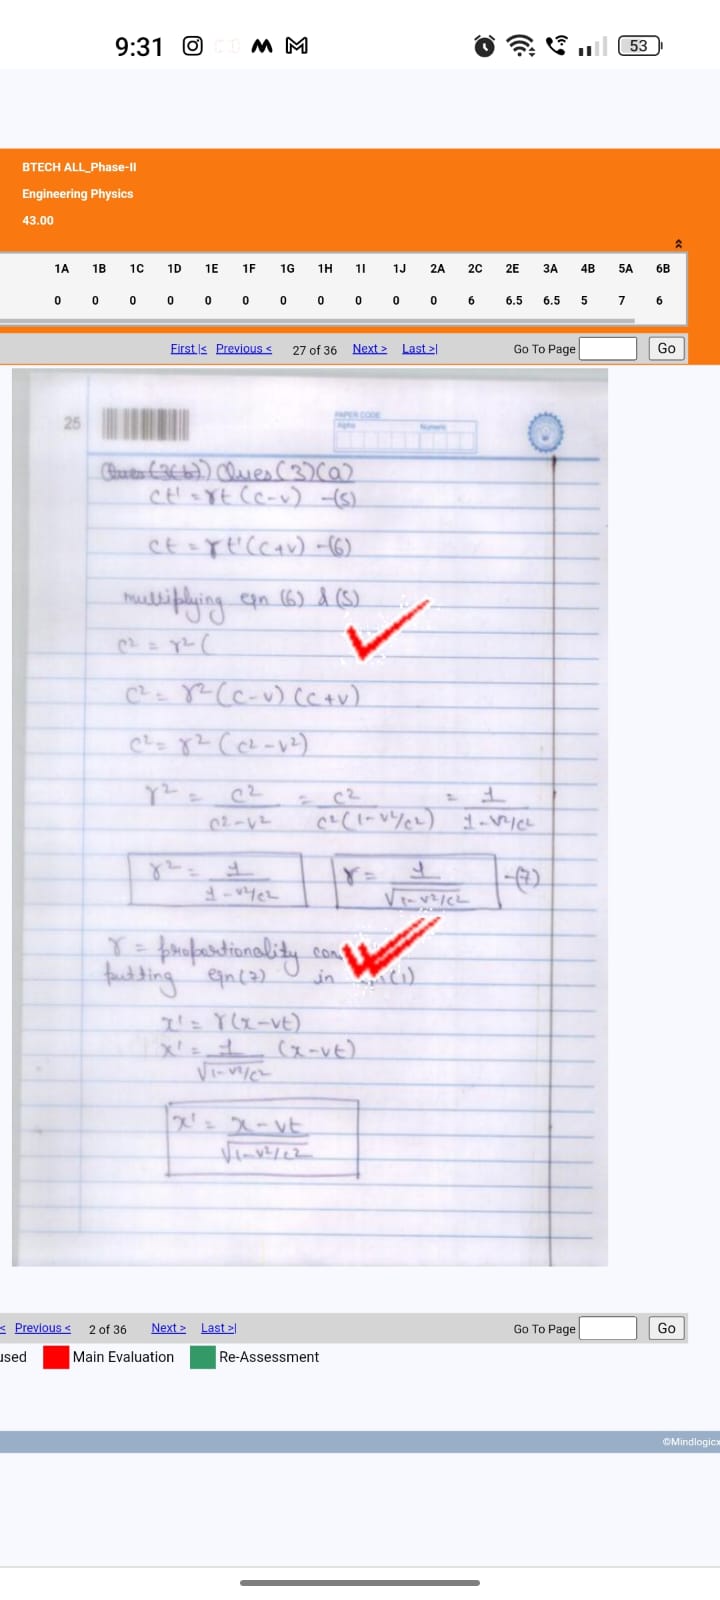 9:31
53
BTECH ALL_Phase-II
Engineering Physics
43.00
1A 1B 1C 1D 1E 1F 1G 1H 1I 1J 2A 2C 2E 3A 4B 5A 6B
0 0 0 0 0 0 0 0 0 0 0 6 6.5 6.5 5 7 6
First |< Previous < 27 of 36 Next > Last >| Go To Page Go
25
PAPER CODE
Alpha Numeric
Ques (3(b)) Ques (3)(a)
ct' = γt (c-v) -(5)
ct = γt' (c+v) -(6)
multiplying eqn (6) & (5)
c² = γ² (
c² = γ² (c-v) (c+v)
c² = γ² (c² - v²)
γ² = c² / c²-v² = c² / c²(1-v²/c²) = 1 / 1-v²/c²
γ² = 1 / 1-v²/c² γ = 1 / √1-v²/c² -(7)
γ = proportionality
putting eqn (7) in (1)
x' = γ(x-vt)
x' = 1 / √1-v²/c² (x-vt)
x' = x-vt / √1-v²/c²
< Previous < 2 of 36 Next > Last >| Go To Page Go
used Main Evaluation Re-Assessment
©Mindlogicx